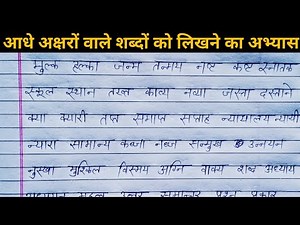 आधे अक्षरों वाले शब्दों को लिखने का अभ्यास
मुल्क हल्का जन्म तन्मय नष्ट कष्ट स्नातक
स्कूल स्थान तख्त काव्य नव्या जस्ता दस्ताने
क्या क्यारी तप्त समाप्त सप्ताह न्यायालय न्यायी
न्यारा सामान्य कब्जा नब्ज सन्मुख उन्नयन
नुस्खा मुश्किल विस्मय अग्नि वाक्य शब्द अध्याय